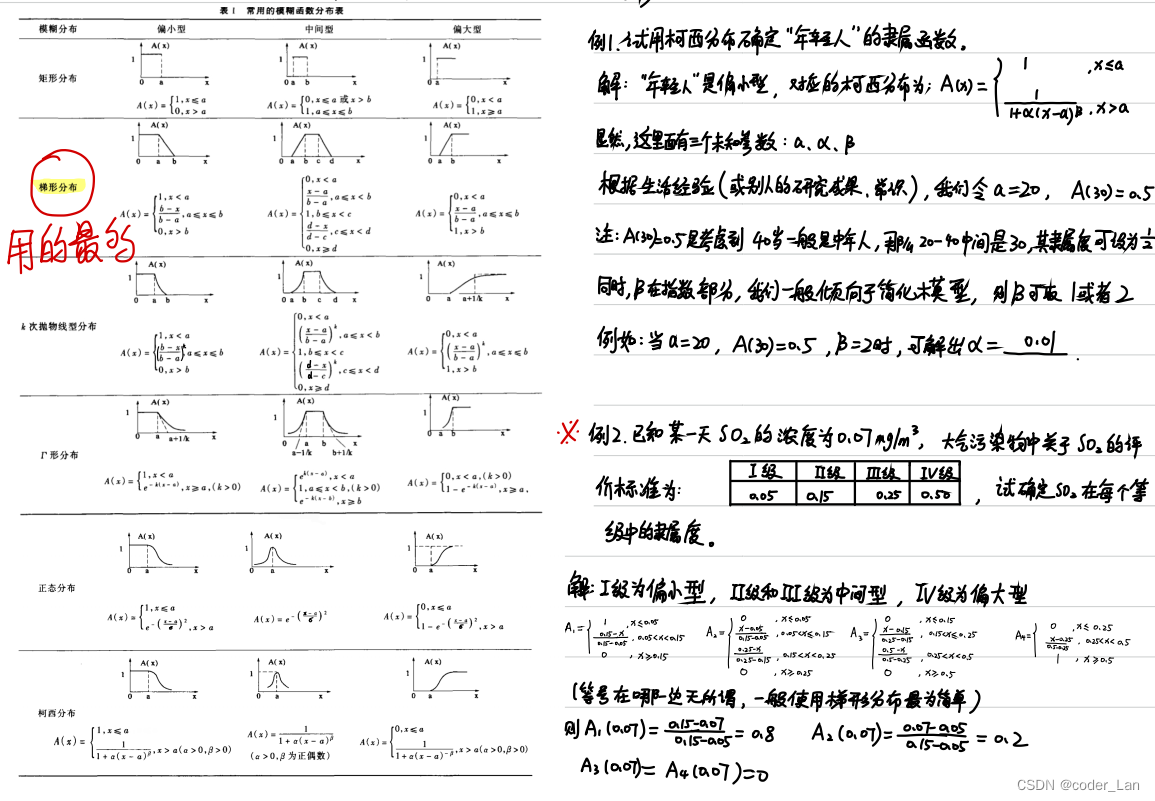 表1 常用的模糊函数分布表
模糊分布 偏小型 中间型 偏大型
矩形分布
A(x) 1 0 a x
A(x) 1 0 a b x
A(x) 1 0 a x
A(x)={1,x≤a 0,x>a
A(x)={0,x≤a 或 x>b 1,a≤x≤b
A(x)={0,x<a 1,x≥a
梯形分布
用的最多
A(x) 1 0 a b x
A(x) 1 0 a b c d x
A(x) 1 0 a b x
A(x)={1,x<a (b-x)/(b-a),a≤x≤b 0,x>b
A(x)={0,x<a (x-a)/(b-a),a≤x<b 1,b≤x<c (d-x)/(d-c),c≤x<d 0,x≥d
A(x)={0,x<a (x-a)/(b-a),a≤x≤b 1,x>b
k次抛物线型分布
A(x) 1 0 a b x
A(x) 1 0 a b c d x
A(x) 1 0 a a+1/k x
A(x)={1,x<a ((b-x)/(b-a))^k,a≤x≤b 0,x>b
A(x)={0,x<a ((x-a)/(b-a))^k,a≤x<b 1,b≤x<c ((d-x)/(d-c))^k,c≤x<d 0,x≥d
A(x)={0,x<a ((x-a)/(b-a))^k,a≤x≤b 1,x>b
Γ形分布
A(x) 1 a a+1/k x
A(x) 1 0 a b x a-1/k b+1/k
A(x) 1 0 a b x
A(x)={1,x<a e^{-k(x-a)},x≥a,(k>0)
A(x)={e^{k(x-a)},x<a 1,a≤x<b,(k>0) e^{-k(x-b)},x≥b
A(x)={0,x<a,(k>0) 1-e^{-k(x-a)},x≥a,
正态分布
A(x) 1 0 a x
A(x) 1 0 a x
A(x) 1 0 a x
A(x)={1,x≤a e^{-((x-a)/σ)^2},x>a
A(x)=e^{-((x-a)/σ)^2}
A(x)={0,x≤a 1-e^{-((x-a)/σ)^2},x>a
柯西分布
A(x) 1 0 a x
A(x) 1 0 a x
A(x) 1 0 a x
A(x)={1,x≤a 1/(1+α(x-a)^β),x>a(α>0,β>0)
A(x)=1/(1+α(x-a)^β)
(α>0,β为正偶数)
A(x)={0,x≤a 1/(1+α(x-a)^{-β}),x>a(α>0,β>0)
例1.试用柯西分布确定“年轻人”的隶属函数。
解:“年轻人”是偏小型,对应的柯西分布为:A(x)={1 ,x≤a 1/(1+α(x-a)^β),x>a
显然,这里面有三个未知参数:a、α、β
根据生活经验(或别人的研究成果、常识),我们令a=20, A(30)=0.5
注:A(30)=0.5是考虑到40岁一般是中年人,那么20-40中间是30,其隶属度可设为1/2
同时,β在指数部分,我们一般倾向于简化模型,则β可取1或者2
例如:当a=20,A(30)=0.5,β=2时,可解出α=0.01.
※例2.已知某一天SO₂的浓度为0.07mg/m³,大气污染物中关于SO₂的评
价标准为:
I级 II级 III级 IV级
0.05 0.15 0.25 0.50
,试确定SO₂在每个等
级中的隶属度。
解:I级为偏小型,II级和III级为中间型,IV级为偏大型
A₁={1 ,x≤0.05 (0.15-x)/(0.15-0.05),0.05<x<0.15 0 ,x≥0.15
A₂={0 ,x≤0.05 (x-0.05)/(0.15-0.05),0.05<x≤0.15 (0.25-x)/(0.25-0.15),0.15<x<0.25 0 ,x≥0.25
A₃={0 ,x≤0.15 (x-0.15)/(0.25-0.15),0.15<x≤0.25 (0.5-x)/(0.5-0.25),0.25<x<0.5 0 ,x≥0.5
A₄={0 ,x≤0.25 (x-0.25)/(0.5-0.25),0.25<x<0.5 1 ,x≥0.5
(等号在哪一边无所谓,一般使用梯形分布最为简单)
则A₁(0.07)=(0.15-0.07)/(0.15-0.05)=0.8 A₂(0.07)=(0.07-0.05)/(0.15-0.05)=0.2
A₃(0.07)=A₄(0.07)=0
CSDN @coder_Lan